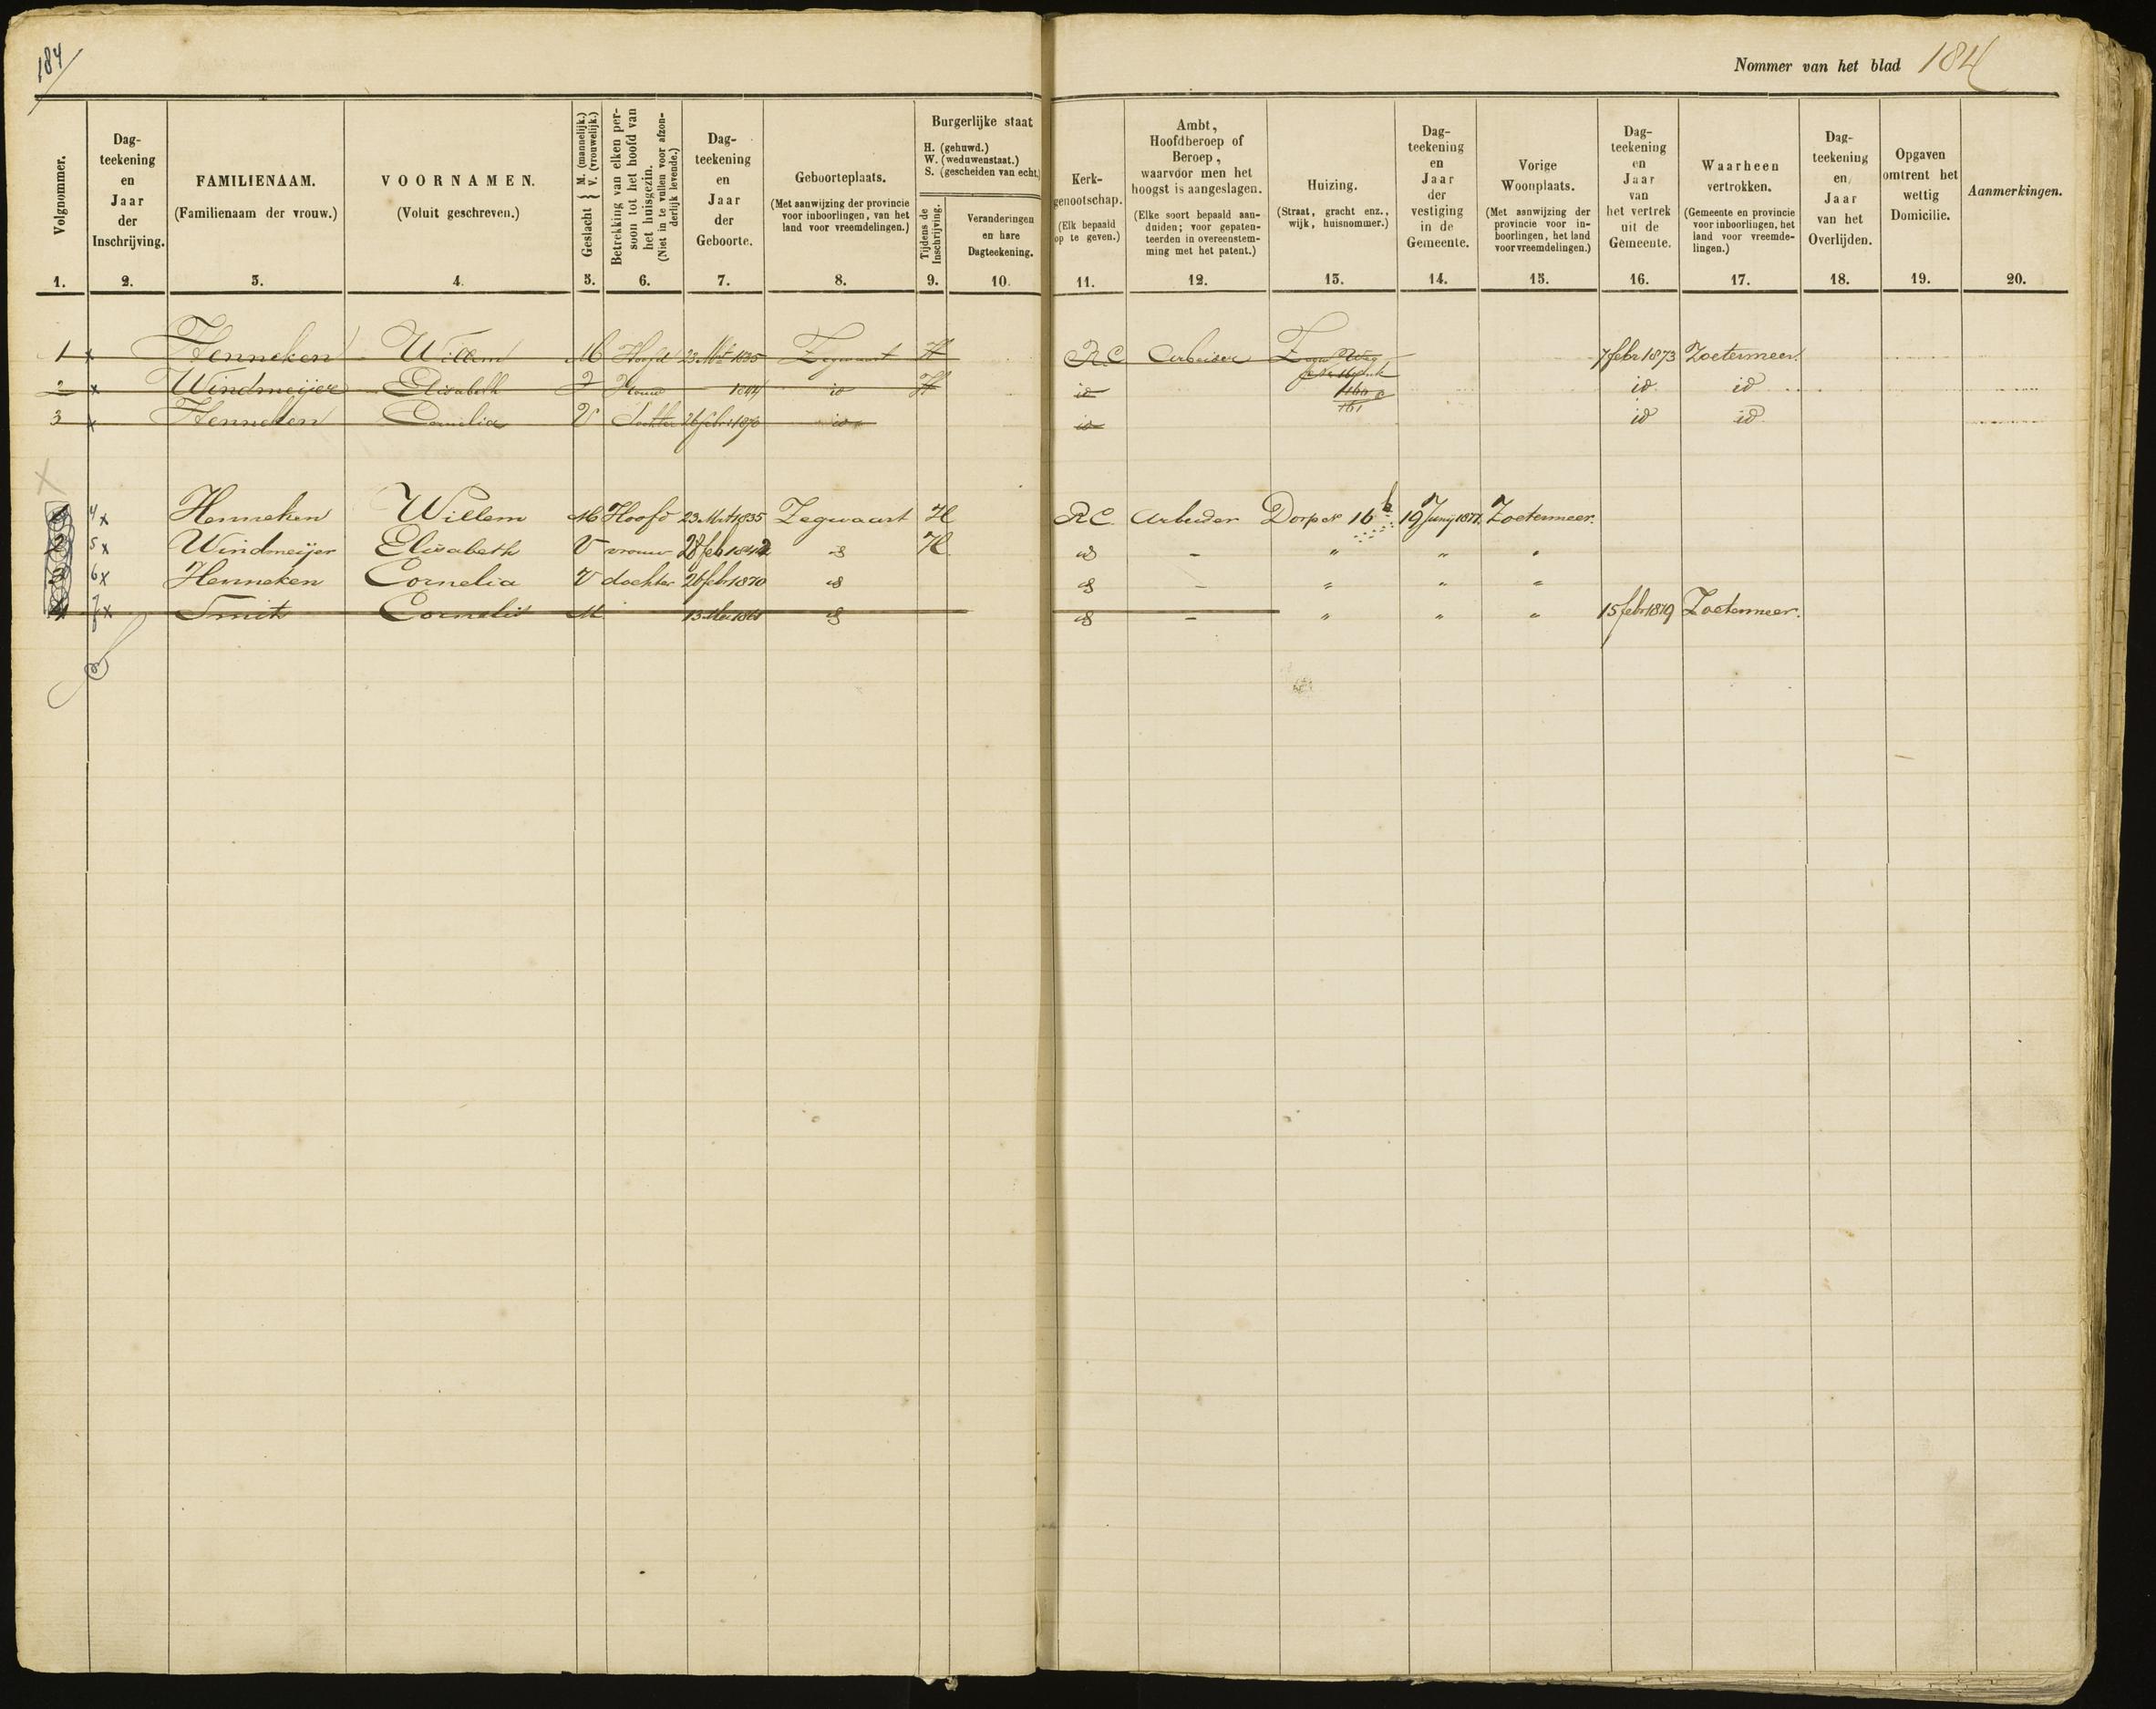 184
Nommer van het blad 184
Volgnommer.
1.
Dag-
teekening
en
Jaar
der
Inschrijving.
2.
FAMILIENAAM.
(Familienaam der vrouw.)
3.
VOORNAMEN.
(Voluit geschreven.)
4.
Geslacht { M. (mannelijk.) V. (vrouwelijk.)
5.
Betrekking van elken per-
soon tot het hoofd van
het huisgezin.
(Niet in te vullen voor afzon-
derlijk levende.)
6.
Dag-
teekening
en
Jaar
der
Geboorte.
7.
Geboorteplaats.
(Met aanwijzing der provincie
voor inboorlingen, van het
land voor vreemdelingen.)
8.
Burgerlijke staat
H. (gehuwd.)
W. (weduwenstaat.)
S. (gescheiden van echt.)
Tijdens de
Inschrijving.
9.
Veranderingen
en hare
Dagteekening.
10.
Kerk-
genootschap.
(Elk bepaald
op te geven.)
11.
Ambt,
Hoofdberoep of
Beroep,
waarvóor men het
hoogst is aangeslagen.
(Elke soort bepaald aan-
duiden; voor gepaten-
teerden in overeenstem-
ming met het patent.)
12.
Huizing.
(Straat, gracht enz.,
wijk, huisnommer.)
13.
Dag-
teekening
en
Jaar
der
vestiging
in de
Gemeente.
14.
Vorige
Woonplaats.
(Met aanwijzing der
provincie voor in-
boorlingen, het land
voor vreemdelingen.)
15.
Dag-
teekening
en
Jaar
van
het vertrek
uit de
Gemeente.
16.
Waarheen
vertrokken.
(Gemeente en provincie
voor inboorlingen, het
land voor vreemde-
lingen.)
17.
Dag-
teekening
en
Jaar
van het
Overlijden.
18.
Opgaven
omtrent het
wettig
Domicilie.
19.
Aanmerkingen.
20.
1 x Henneken Willem M Hoofd 23 Mrt 1835 Zegwaart H RC Arbeider 7 febr 1873 Zoetermeer.
2 x Windmeijer Elisabeth V Vrouw 1844 id H id id id
3 x Henneken Cornelia V Dochter 26 febr 1870 id id id id
161
4 x Henneken Willem M Hoofd 23 Mrt 1835 Zegwaart H RC Arbeider Dorp N 16 b 19 Junij 1877. Zoetermeer.
5 x Windmeijer Elisabeth V vrouw 28 feb 1842 id H id - " " "
6 x Henneken Cornelia V dochter 26 feb 1870 id id - " " "
7 x Smit Cornelis M id id - " " " 15 febr 1879 Zoetermeer.